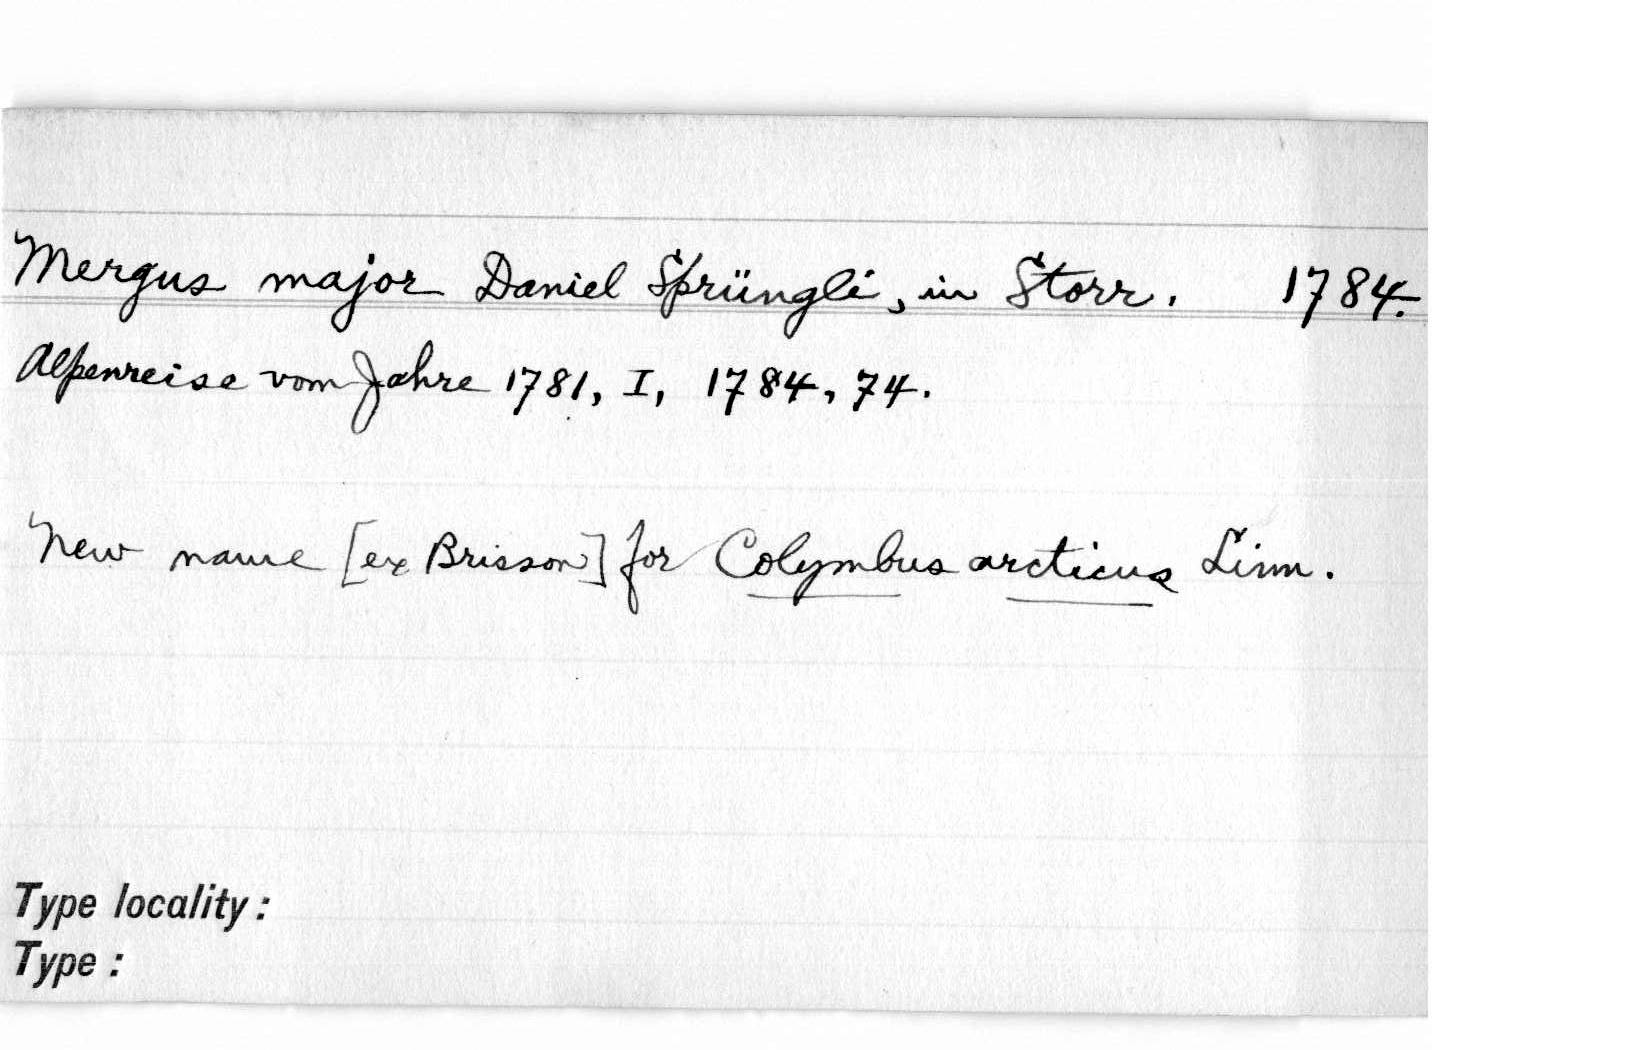 Mergus major Daniel Sprüngli, in Storr. 1784.
Alpenreise vom Jahre 1781, I, 1784, 74.
New name [ex Brisson] for Colymbus arcticus Linn.
Type locality:
Type: